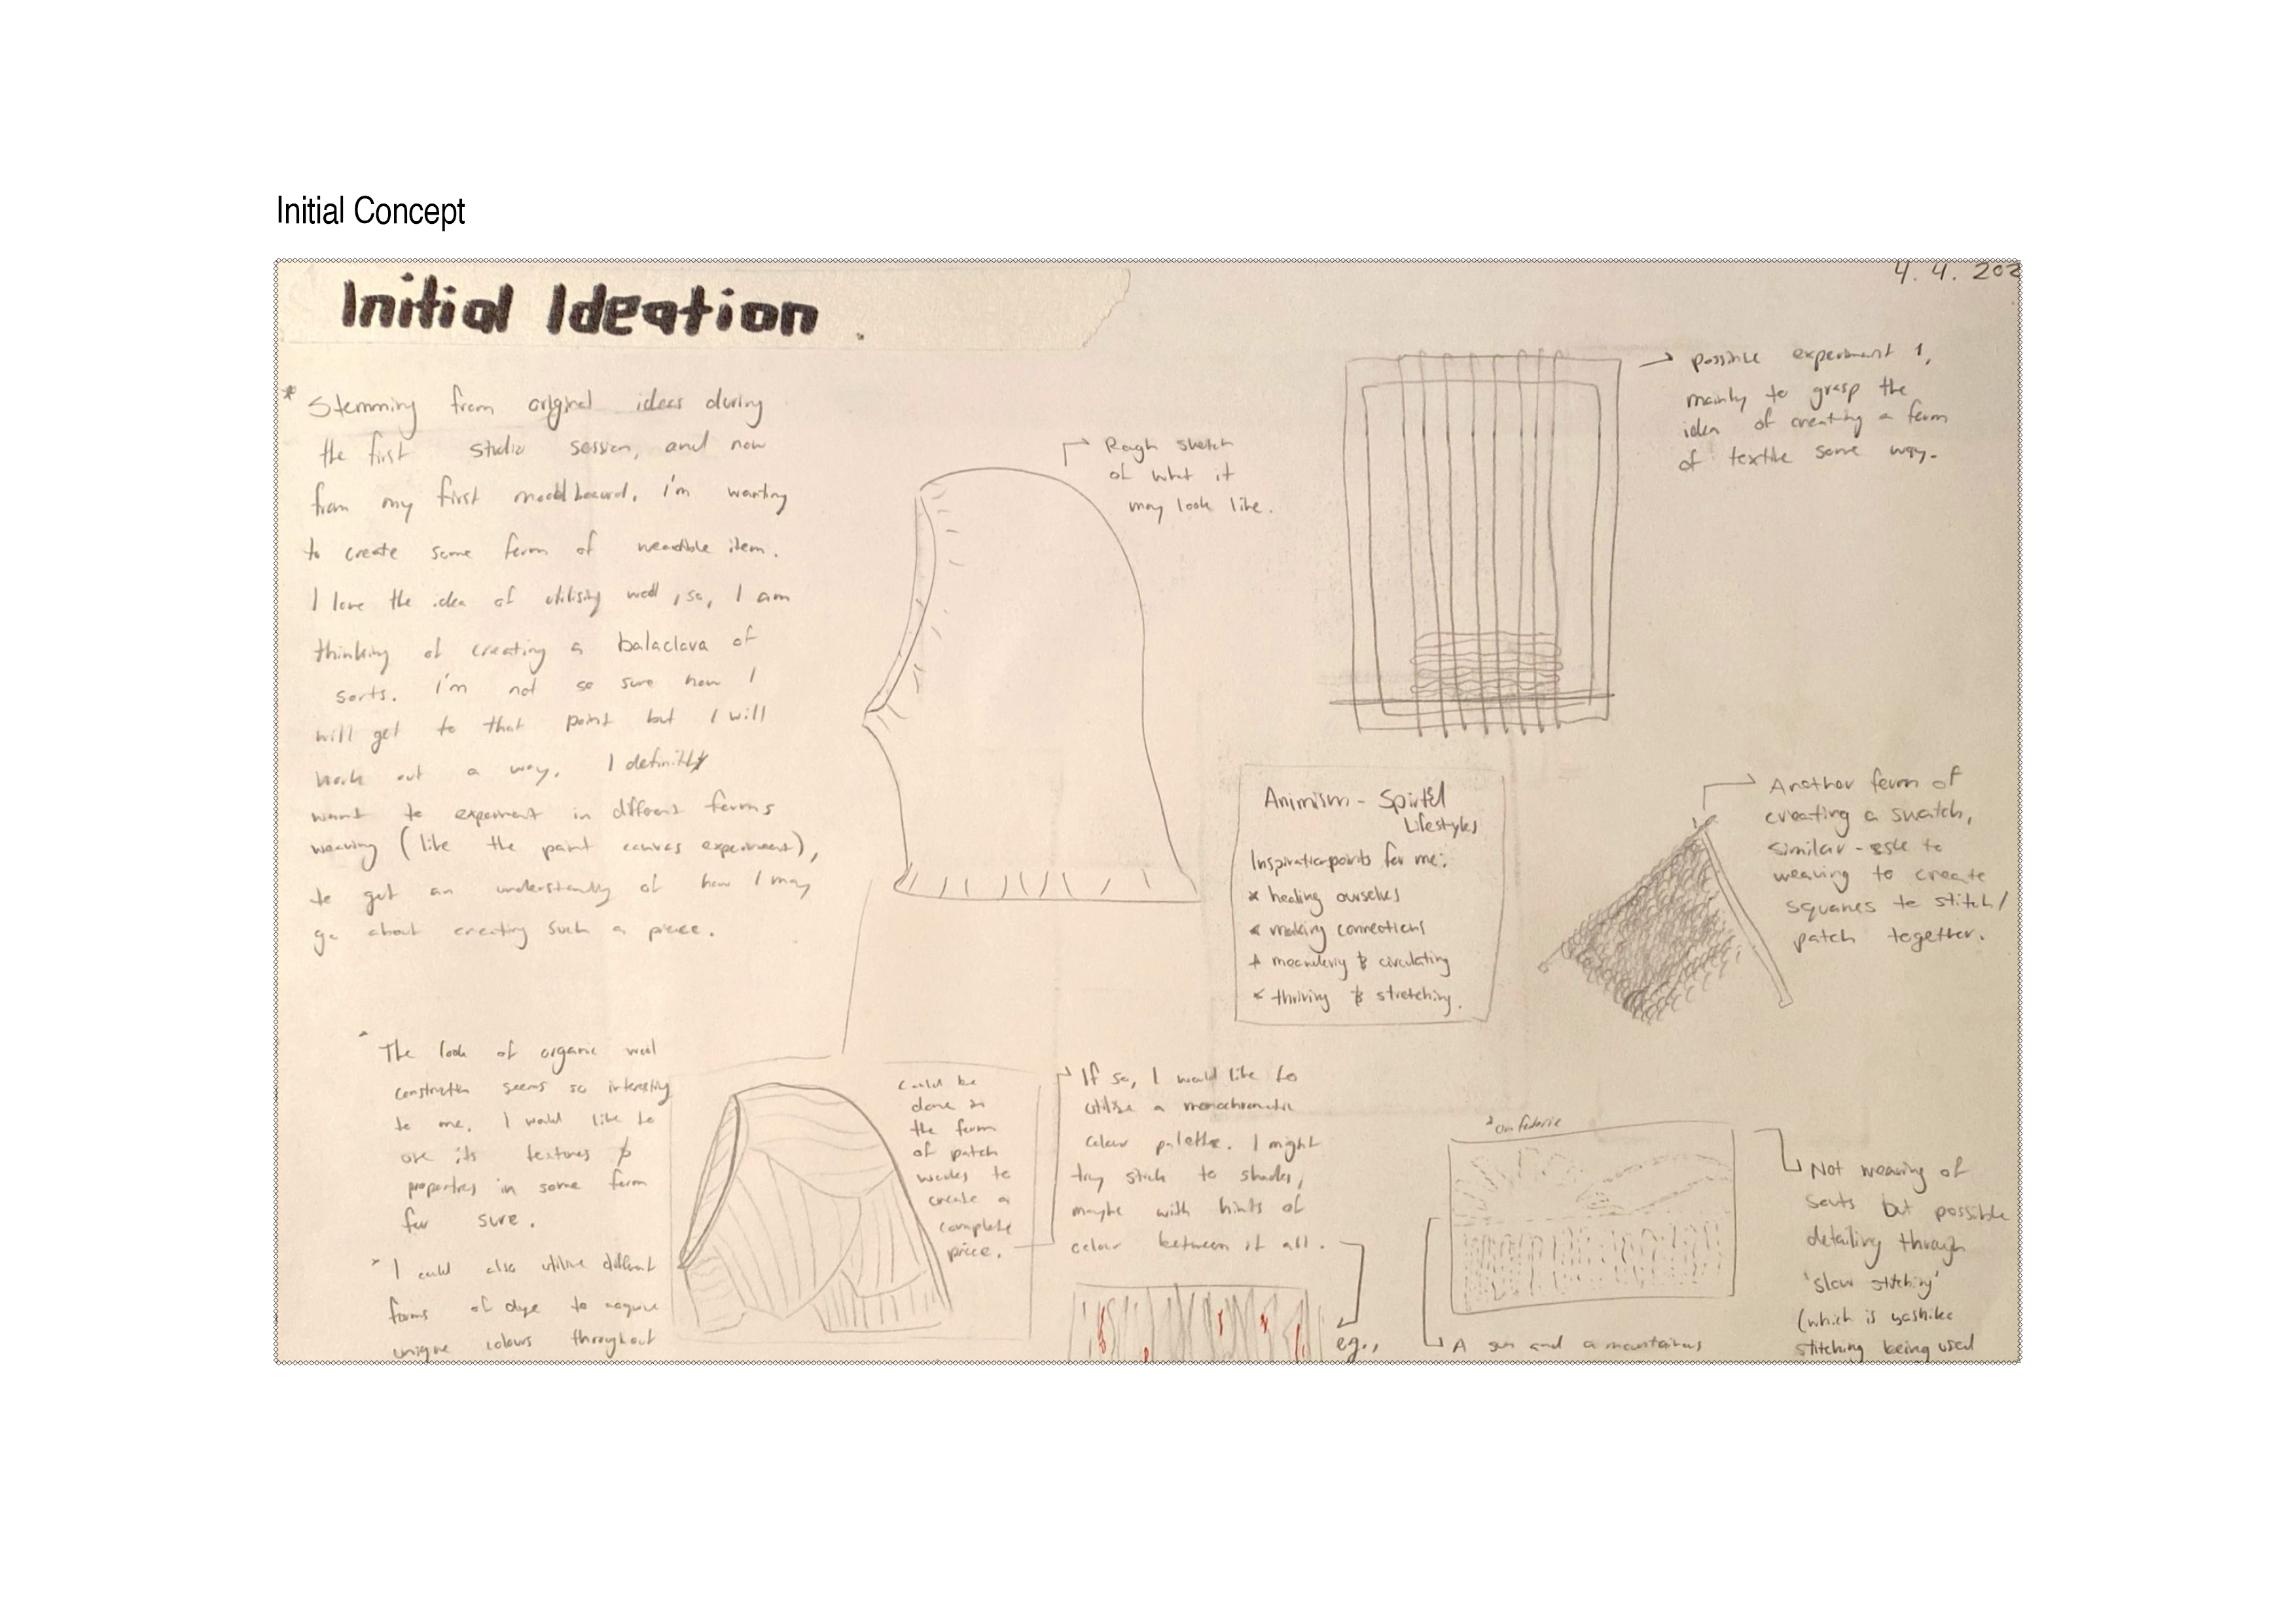 Initial Concept
Initial Ideation.
4. 4. 202
* Stemming from original ideas during
the first studio session, and now
from my first moodboard, i'm wanting
to create some form of wearible item.
I love the idea of utilising wool, so, I am
thinking of creating a balaclava of
sorts. I'm not so sure how I
will get to that point but I will
work out a way. I definitly
want to experiment in different forms
weaving (like the paint canvas experiment),
to get an understanding of how I may
go about creating such a piece.
* The look of organic wool
construction seems so interesting
to me. I would like to
use its textures &
properties in some form
for sure.
* I could also utilise different
forms of dye to acquire
unique colours throughout
Rough sketch
of what it
may look like.
possible experiment 1,
mainly to grasp the
idea of creating a form
of textile some way.
Animism - Spirtẽl
Lifestyles
Inspiration points for me:
* healing ourselves
* making connections
* meandering & circulating
* thriving & stretching.
Another form of
creating a swatch,
similar-ssh to
weaving to create
squares to stitch/
patch together.
could be
done in
the form
of patch
works to
create a
complete
piece.
If so, I would like to
utilise a monochromatic
colour palette. I might
try stick to shades,
maybe with hints of
colour between it all.
eg.,
* on fabric
A sun and a mountainous
Not weaving of
sorts but possible
detailing through
'slow stitching'
(which is sashiko
stitching being used